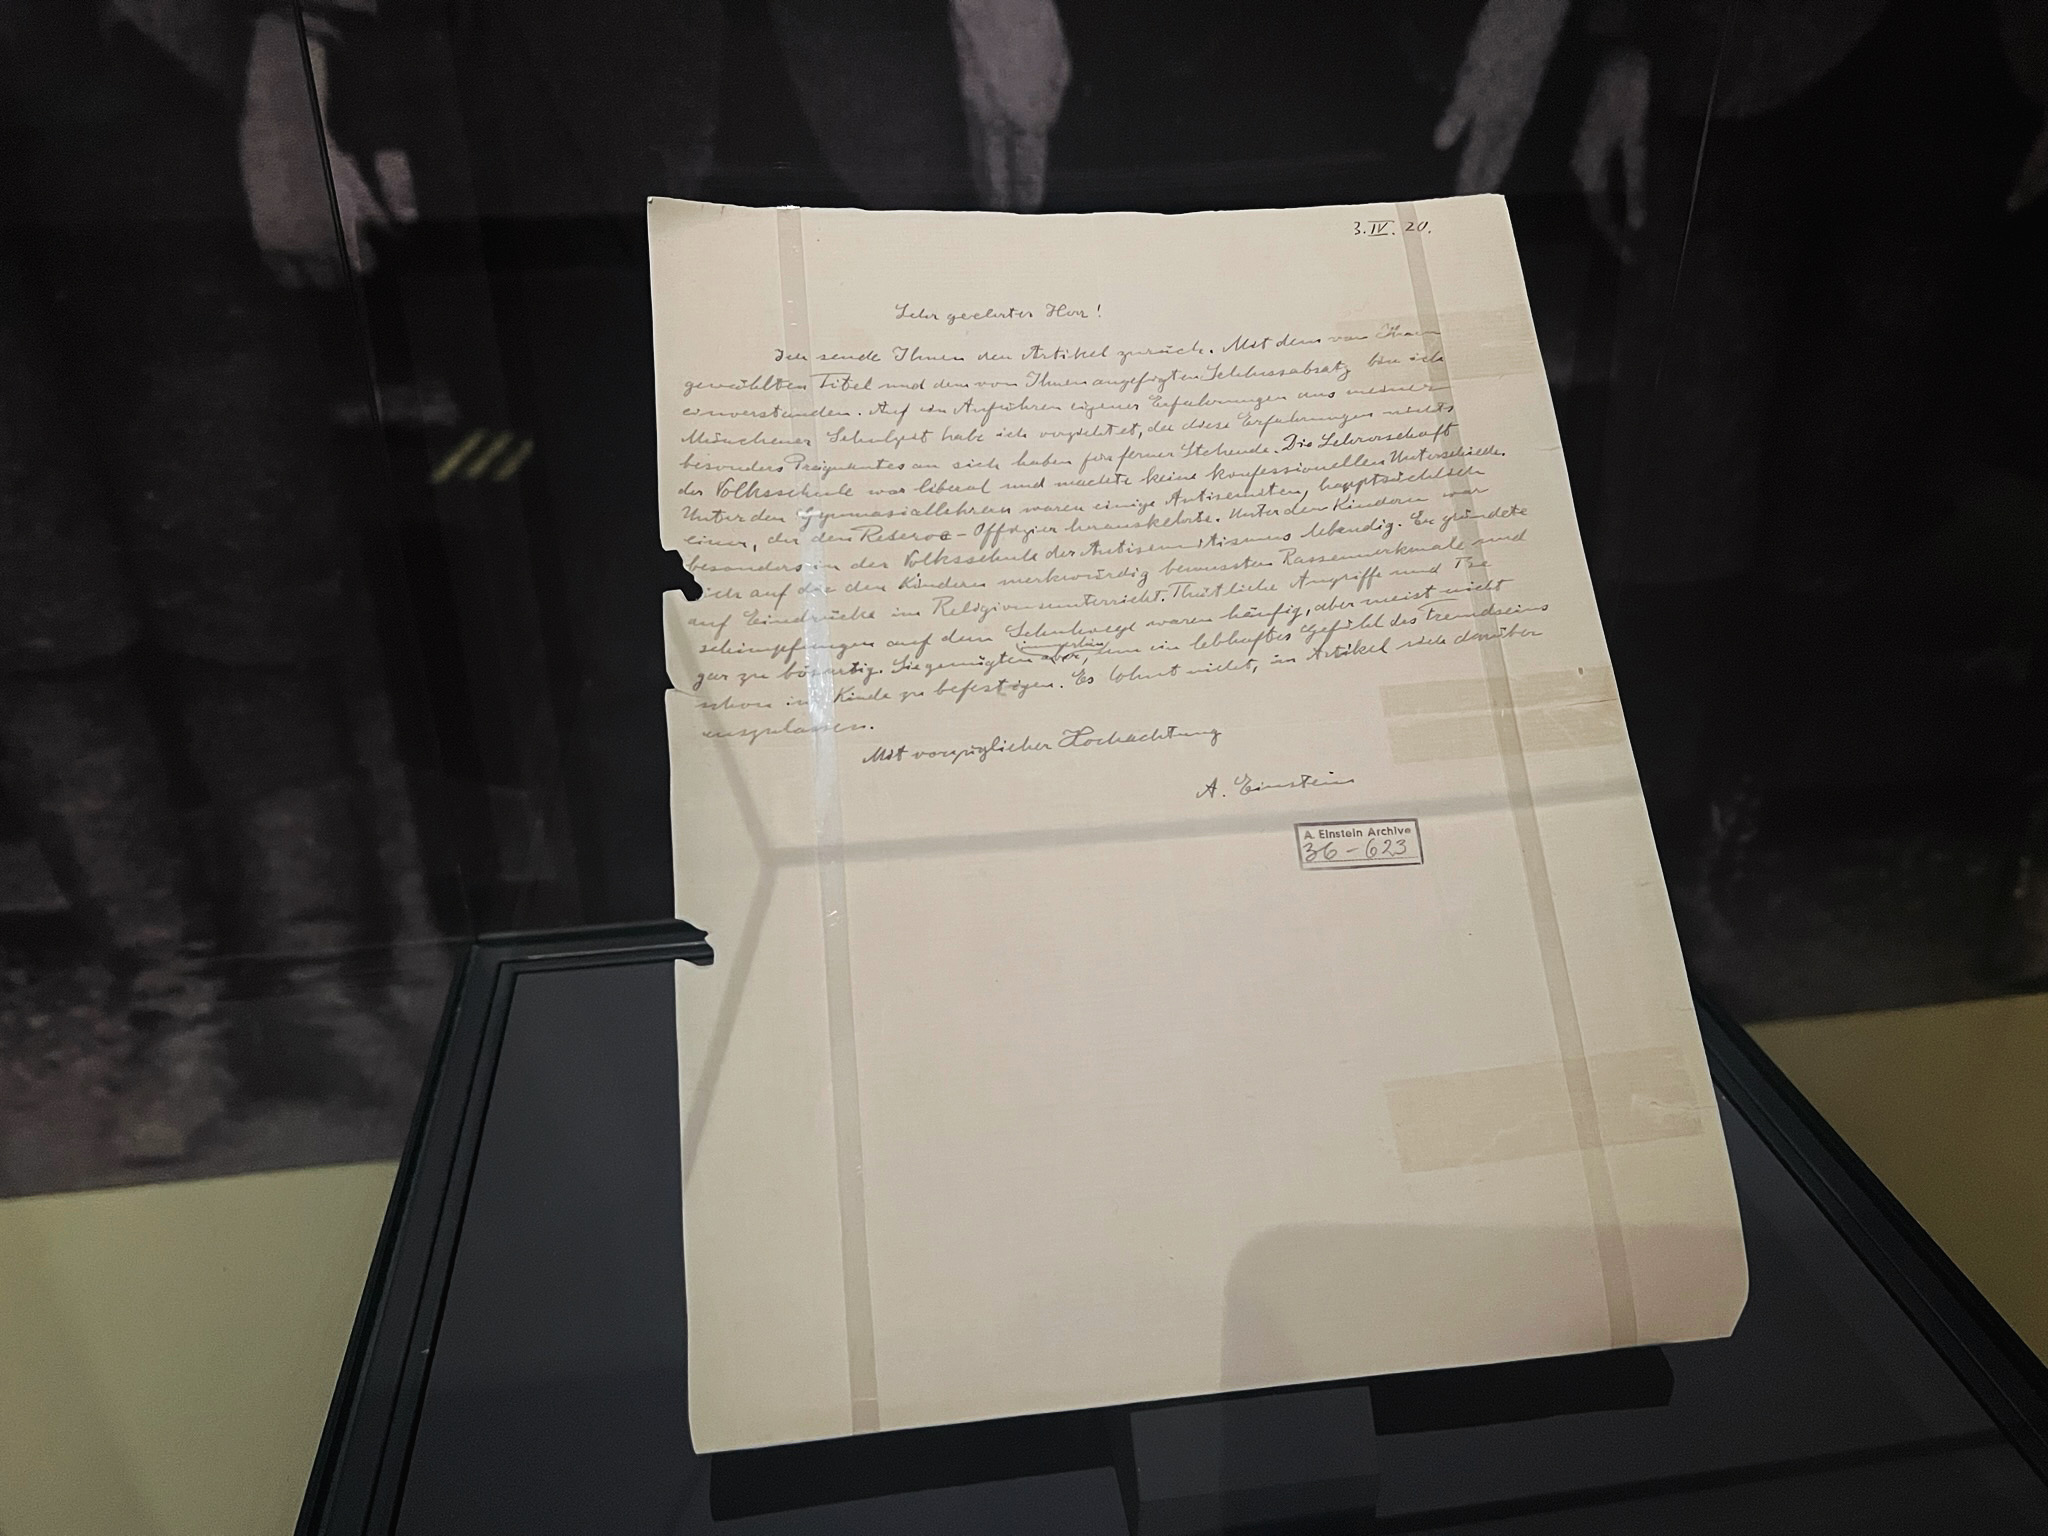 3.IV.20.
Sehr geehrter Herr!
Ich sende Ihnen den Artikel zurück. Mit dem von Ihnen
gewählten Titel und dem von Ihnen angefügten Schlussabsatz bin ich
einverstanden. Auf ein Anführen eigener Erfahrungen aus meiner
Münchener Schulzeit habe ich verzichtet, da diese Erfahrungen nichts
besonders Prägnantes an sich haben für ferner Stehende. Die Lehrerschaft
der Volksschule war liberal und machte keine konfessionellen Unterschiede.
Unter den Gymnasiallehrern waren einige Antisemiten, hauptsächlich
einer, der den Reserve-Offizier herauskehrte. Unter den Kindern war
besonders in der Volksschule der Antisemitismus lebendig. Er gründete
sich auf die den Kindern merkwürdig bewussten Rassenmerkmale und
auf Eindrücke im Religionsunterricht. Thätliche Angriffe und Be
schimpfungen auf dem Schulwege waren häufig, aber meist nicht
gar zu bösartig. Sie genügten immerhin, um ein lebhaftes Gefühl des Fremdseins
schon im Kinde zu befestigen. Es lohnt nicht, im Artikel sich darüber
auszulassen.
Mit vorzüglicher Hochachtung
A. Einstein
A. Einstein Archive
36-623